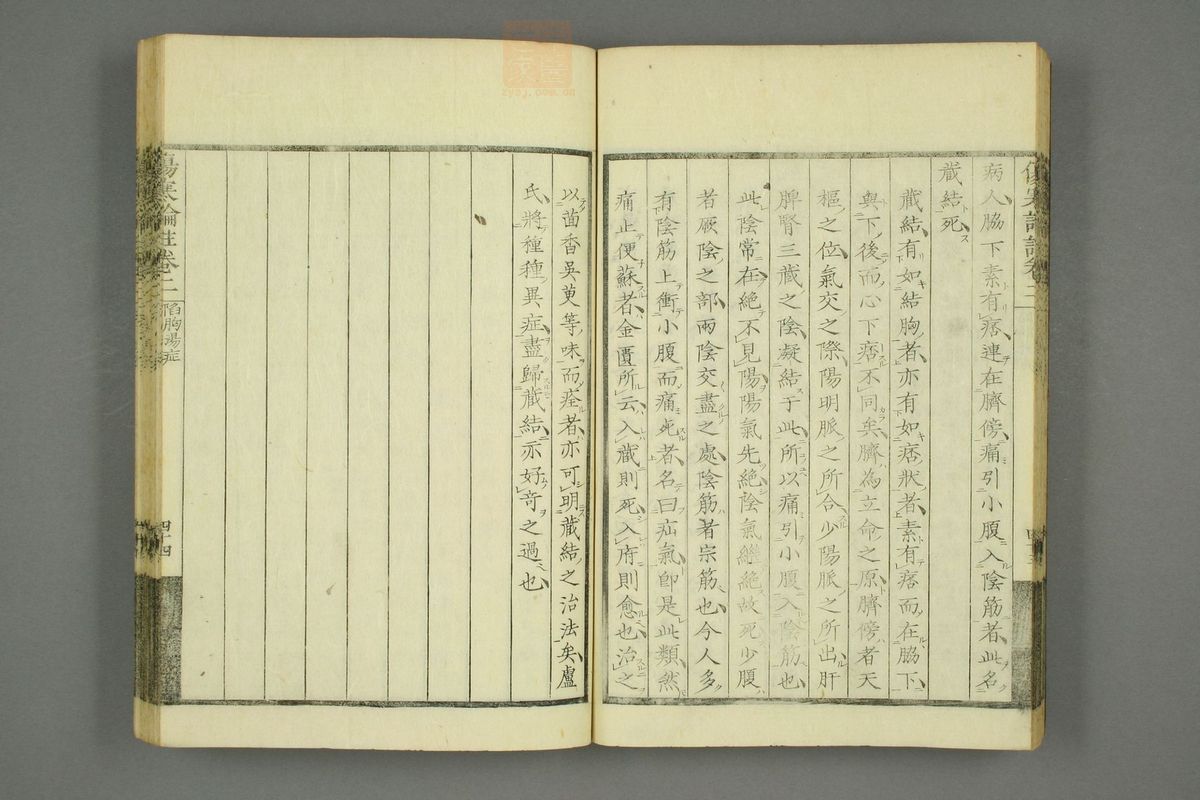 病人脇下素有痞連在臍傍痛引小腹入陰筋者此名
蔵結死
蔵結有如結胸者亦有如痞狀者素有痞而在脇下
與下後而心下痞不同矣臍為立命之原臍傍者天
樞之位氣交之際陽明脈之所合少陽脈之所出肝
脾腎三蔵之陰凝結于此所以痛引小腹入陰筋也
此陰常在絶不見陽陽氣先絶陰氣繼絶故死少腹
者厥陰之部兩陰交盡之處陰筋者宗筋也今人多
有陰筋上衝小腹而痛死者名曰疝氣即是此類然
痛止便蘇者金匱所云入蔵則死入府則愈也治之
以茴香吳萸等味而痊者亦可明蔵結之治法矣盧
氏將種種異症盡歸蔵結亦好奇之過也
傷寒論註卷二
陷胸湯症
四十四